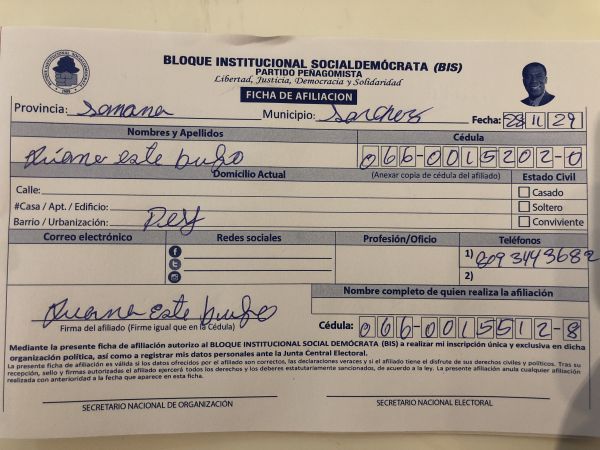 BLOQUE INSTITUCIONAL SOCIALDEMÓCRATA (BIS)
PARTIDO PEÑAGOMISTA
Libertad, Justicia, Democracia y Solidaridad
FICHA DE AFILIACION
Provincia: Samana Municipio: Sanchez Fecha: 28 11 29
Nombres y Apellidos Cédula
este burgo 066-0015202-0
Domicilio Actual (Anexar copia de cédula del afiliado) Estado Civil
Calle: Casado
#Casa / Apt. / Edificio: Soltero
Barrio / Urbanización: Conviviente
Correo electrónico Redes sociales Profesión/Oficio Teléfonos
1) 809 3443682
2)
Nombre completo de quien realiza la afiliación
Este burgo
Firma del afiliado (Firme igual que en la Cédula) Cédula: 066-0015512-8
Mediante la presente ficha de afiliación autorizo al BLOQUE INSTITUCIONAL SOCIAL DEMÓCRATA (BIS) a realizar mi inscripción única y exclusiva en dicha
organización política, así como a registrar mis datos personales ante la Junta Central Electoral.
La presente ficha de afiliación es válida si los datos ofrecidos por el afiliado son correctos, las declaraciones veraces y si el afiliado tiene el disfrute de sus derechos civiles y políticos. Tras su
recepción, sello y firmas autorizadas el afiliado ejercerá todos los derechos y los deberes estatutariamente sancionados, de acuerdo a la ley. La presente afiliación anula cualquier afiliación
realizada con anterioridad a la fecha que aparece en esta ficha.
SECRETARIO NACIONAL DE ORGANIZACIÓN SECRETARIO NACIONAL ELECTORAL